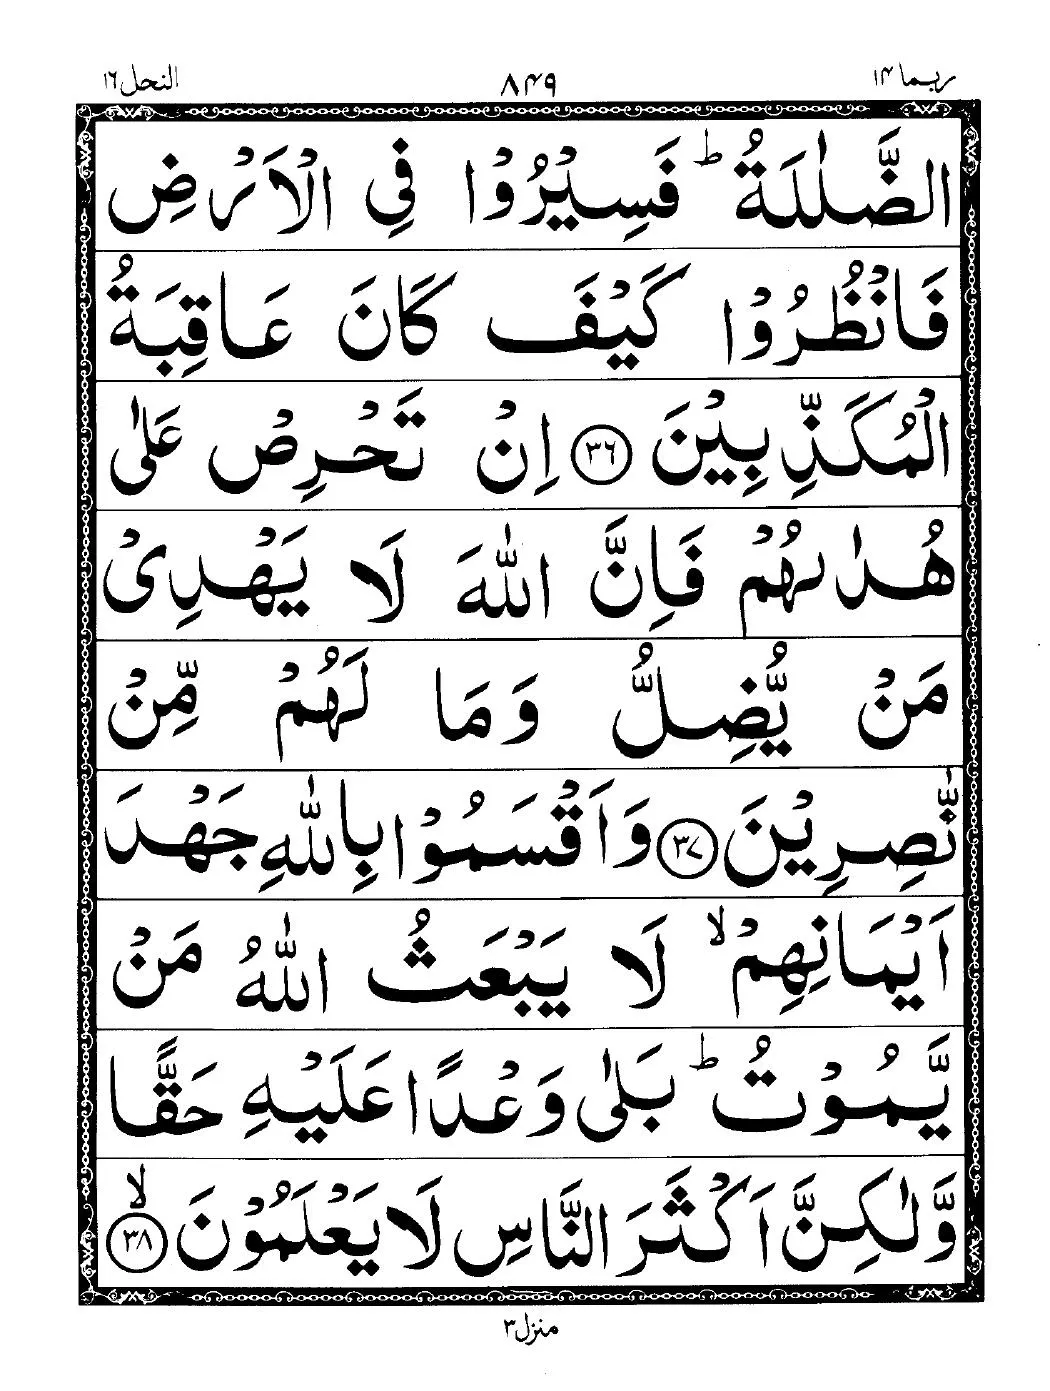 ربما ١٤
٨٤٩
النحل ١٦
الضَّلٰلَةُ ؕ فَسِيْرُوْا فِي الْاَرْضِ
فَانْظُرُوْا كَيْفَ كَانَ عَاقِبَةُ
الْمُكَذِّبِيْنَ ﴿٣٦﴾ اِنْ تَحْرِصْ عَلٰى
هُدٰىهُمْ فَاِنَّ اللّٰهَ لَا يَهْدِيْ
مَنْ يُّضِلُّ وَمَا لَهُمْ مِّنْ
نّٰصِرِيْنَ ﴿٣٧﴾ وَاَقْسَمُوْا بِاللّٰهِ جَهْدَ
اَيْمَانِهِمْ ۙ لَا يَبْعَثُ اللّٰهُ مَنْ
يَّمُوْتُ ؕ بَلٰى وَعْدًا عَلَيْهِ حَقًّا
وَّلٰكِنَّ اَكْثَرَ النَّاسِ لَا يَعْلَمُوْنَ ۙ ﴿٣٨﴾
منزل ٣